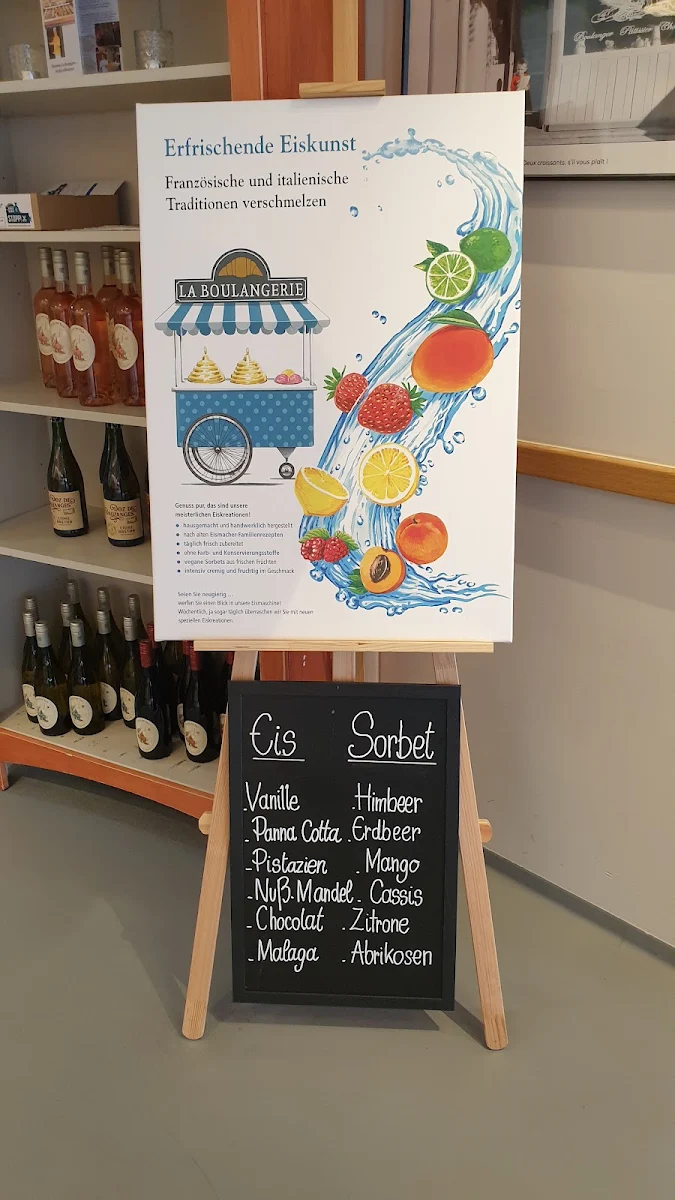 Erfrischende Eiskunst
Französische und italienische
Traditionen verschmelzen
LA BOULANGERIE
Genuss pur, das sind unsere
meisterlichen Eiskreationen!
hausgemacht und handwerklich hergestellt
nach alten Eismacher-Familienrezepten
täglich frisch zubereitet
ohne Farb- und Konservierungsstoffe
vegane Sorbets aus frischen Früchten
intensiv cremig und fruchtig im Geschmack
Seien Sie neugierig ...
werfen Sie einen Blick in unsere Eismaschine!
Wöchentlich, ja sogar täglich überraschen wir Sie mit neuen
speziellen Eiskreationen.
Eis Sorbet
-Vanille .Himbeer
-Panna Cotta .Erdbeer
-Pistazien .Mango
-Nuß-Mandel .Cassis
-Chocolat .Zitrone
-Malaga .Abrikosen
Boulanger Pâtissier
Deux croissants, s'il vous plaît !